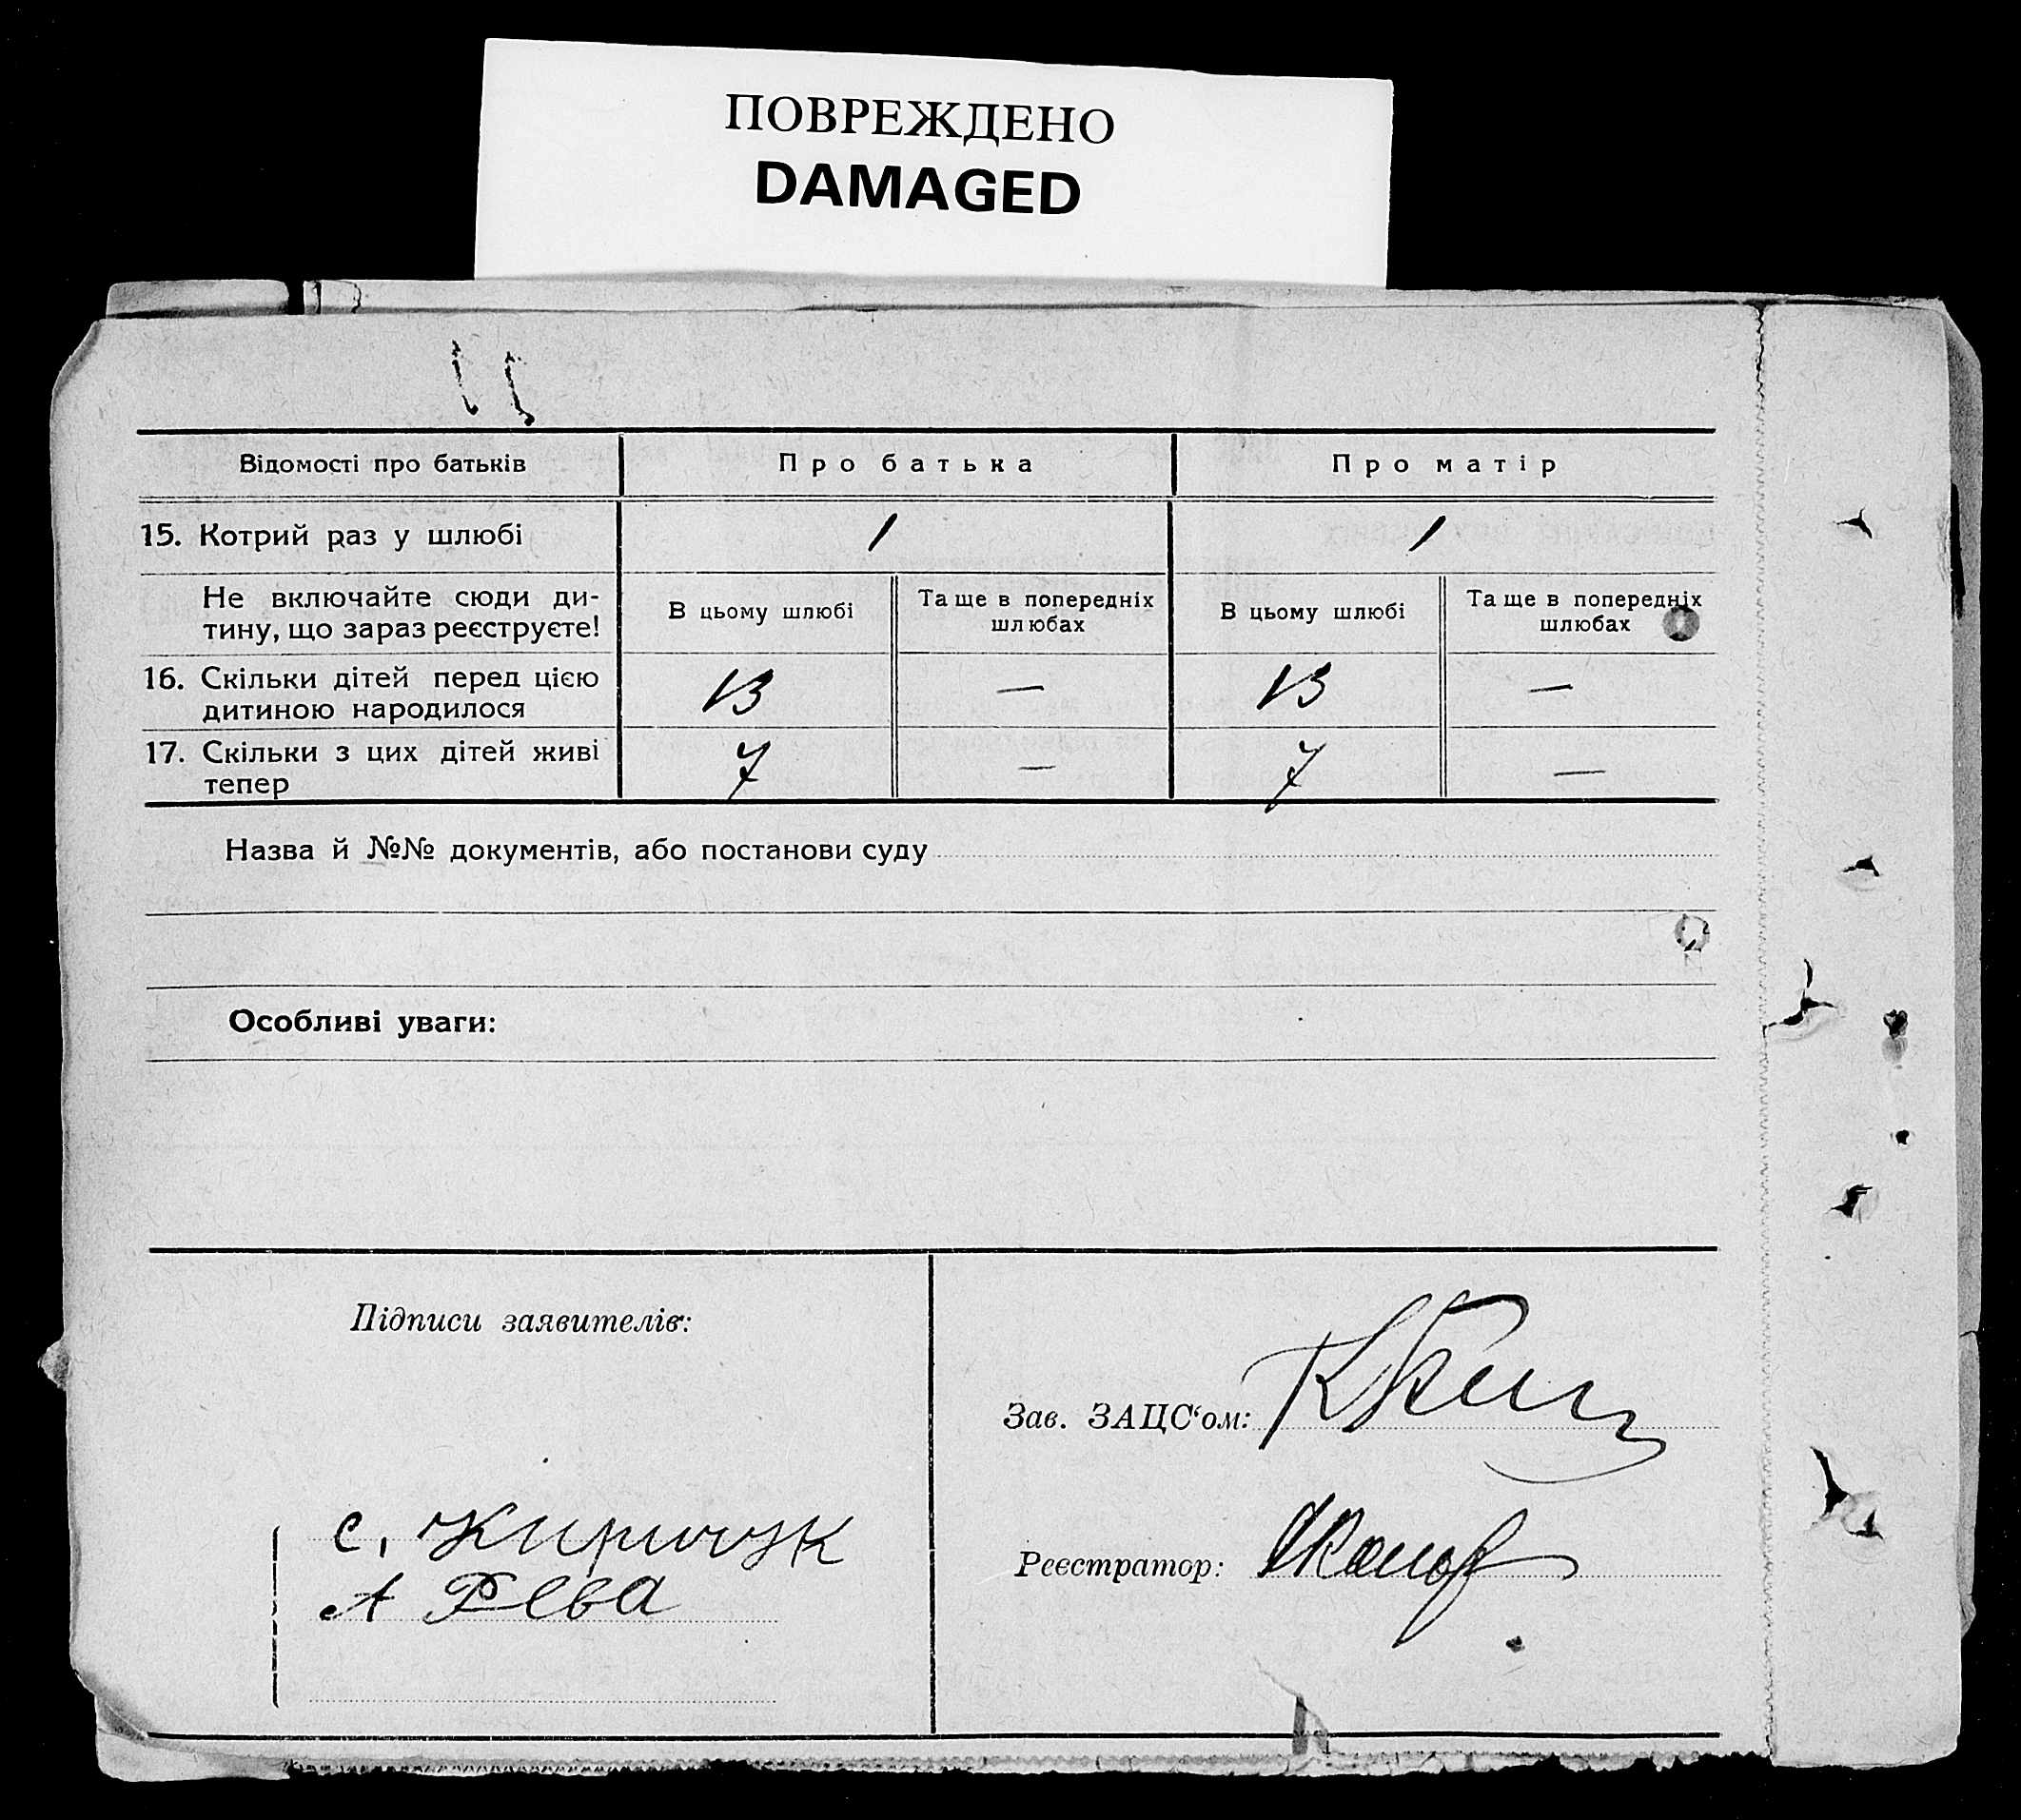 ПОВРЕЖДЕНО
DAMAGED
Відомості про батьків
Про батька
Про матір
15. Котрий раз у шлюбі
1
1
Не включайте сюди ди-
тину, що зараз реєструєте!
В цьому шлюбі
Та ще в попередніх
шлюбах
В цьому шлюбі
Та ще в попередніх
шлюбах
16. Скільки дітей перед цією
дитиною народилося
13
—
13
—
17. Скільки з цих дітей живі
тепер
7
—
7
—
Назва й №№ документів, або постанови суду
Особливі уваги:
Підписи заявителів:
Зав. ЗАЦС‘ом:
С. Киричук
А Рева
Реєстратор: